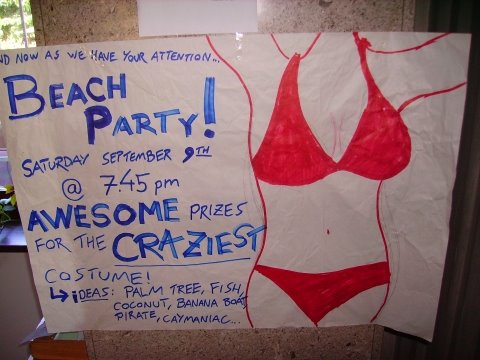 ND NOW AS WE HAVE YOUR ATTENTION...
BEACH
PARTY!
SATURDAY SEPTEMBER 9TH
@ 7.45 pm
AWESOME PRIZES
FOR THE CRAZIEST
COSTUME!
↳ iDEAS: PALM TREE, FISH,
COCONUT, BANANA BOAT,
PIRATE, CAYMANIAC...